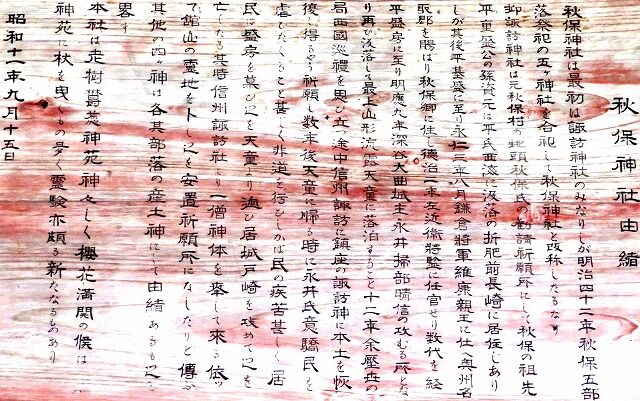 秋保神社由緒
秋保神社は最初は諏訪神社のみなりしが明治四十二年秋保五部
落奈祀の五ヶ神社を合祀して秋保神社と改称したるなり
抑諏訪神社は元秋保村の地頭秋保氏の勧請祈願所にして秋保の祖先
平重盛公の孫資元は平氏西海に没落の折肥前長崎に居住しあり
しが其後平基盛に至り永仁三年八月鎌倉将軍維康親王に仕へ奥州名
取郡を賜はり秋保郷に住し徳治二年左近衛将監に任官せり数代を経
平盛房に至り明應九年深谷大曲城主永井掃部晴信の攻むる所とな
り再び没落して最上山形流露天童に落泊すること十二年余歴世の
局西國巡禮を思ひ立つ途中信州諏訪に鎮座の諏訪神に本土を恢
後し得るやう祈願し数年後天童に帰る時に永井氏意驕民を
虐ひたくること甚しく非道を行ひしかば民の疾苦甚しく居
民は盛房を慕ひ之を天童より迎ひ居城戸崎を攻めて之を
亡したる其時信州諏訪社より一僧神体を奉して来る依っ
て館山の霊地を卜し之を安置祈願所になしたりと傳ふ
其他の四ヶ神は各其部落の産土神にして由緒あるも之を
畧す
本社は老樹欝葱神苑神々しく櫻花満開の候は
神苑に杖を曳くもの多く霊験亦頗る新たなるものあり
昭和十一年九月十五日